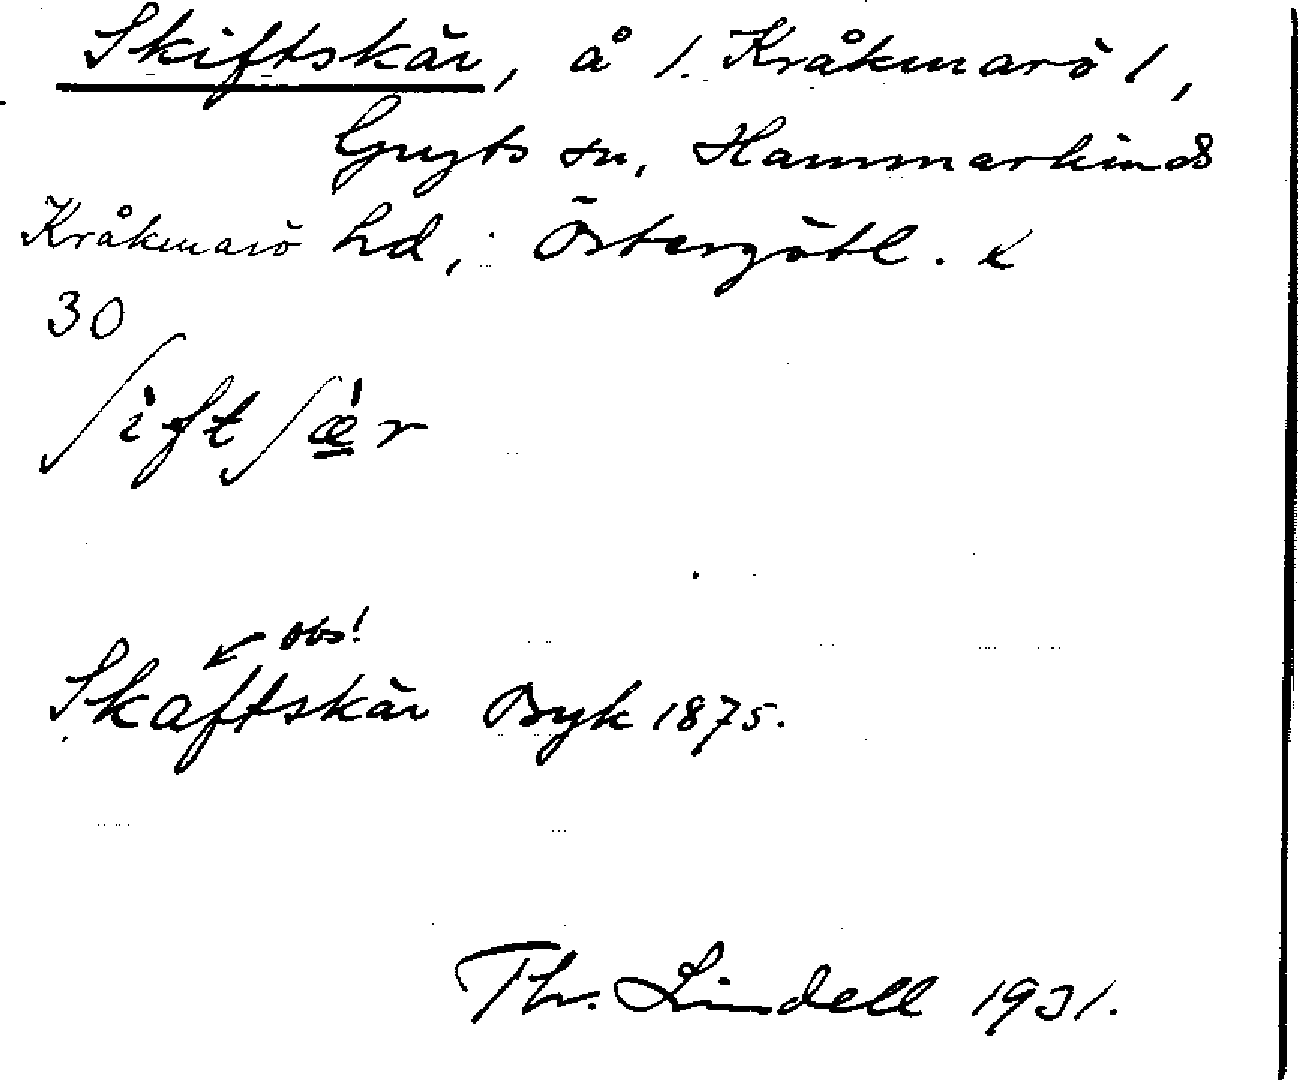 Skiftskär, å 1. Kråkmarö 1,
Gryts sn, Hammarkinds
Kråkmarö hd, Östergötl. K
30
ʃìftʃæ̀r
← obs!
Skaftskär Byk 1875.
Thr. Lindell 1931.